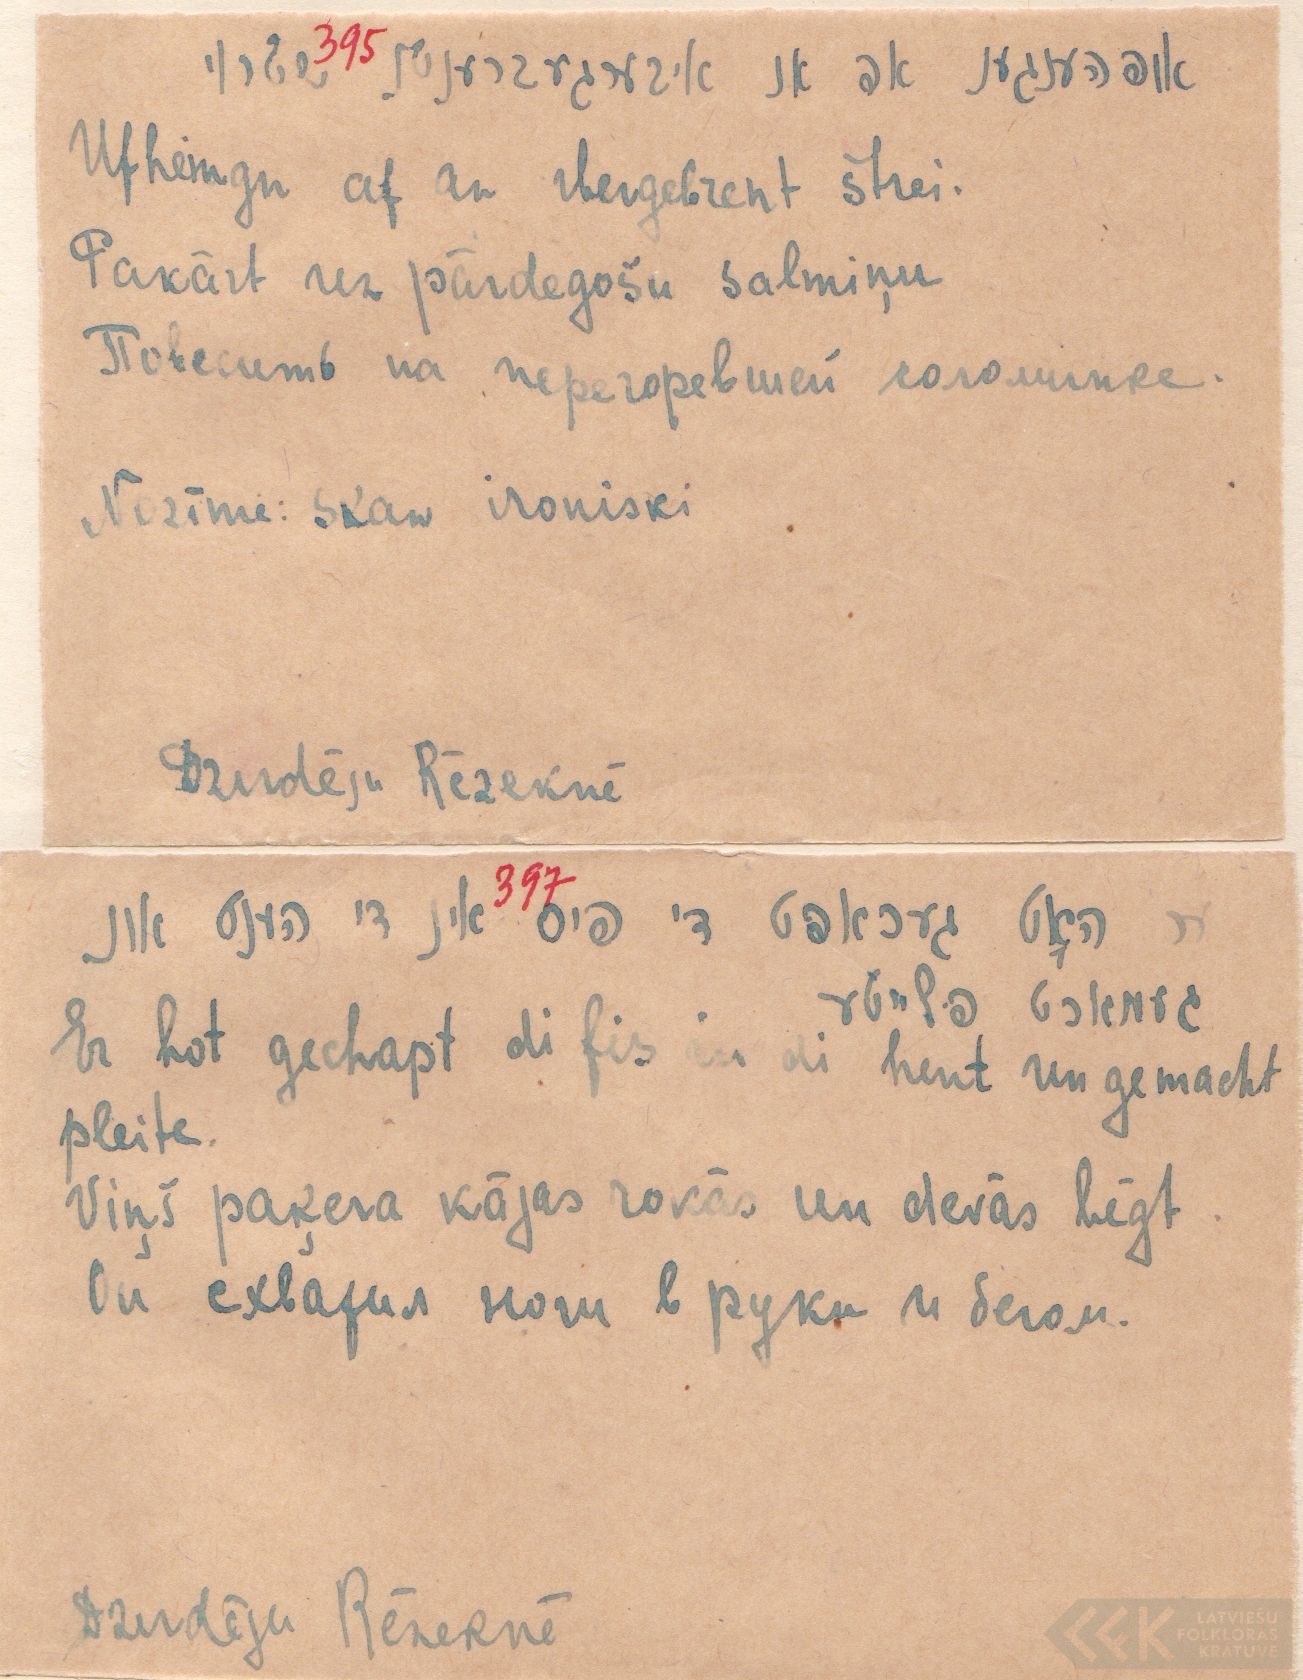 395
אופהענגען אפ אן איבערגעברענטן שטרוי
Ufhengn af an ibergebrent štrei.
Pakārt uz pārdegošu salmiņu
Повесить на перегоревшей соломинке.
Nozīme: skan ironiski
Dzirdēju Rēzeknē
397
ער האָט געכאפט די פיס אין די הענט און
געמאכט פּלייטע
Er hot gechapt di fis in di hent un gemacht
pleite.
Viņš paķera kājas rokās un devās bēgt.
Он схватил ноги в руки и бегом.
Dzirdēju Rēzeknē
LATVIEŠU
FOLKLORAS
KRĀTUVE